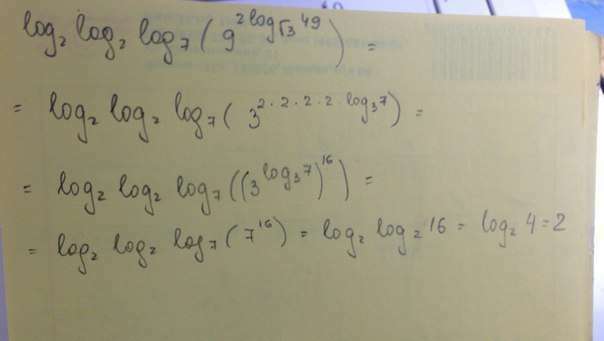 log₂ log₂ log₇ (9^(2log_√3 49)) =
= log₂ log₂ log₇ (3^(2·2·2·2·log₃7)) =
= log₂ log₂ log₇ ((3^(log₃7))^16) =
= log₂ log₂ log₇ (7^16) = log₂ log₂ 16 = log₂ 4 = 2